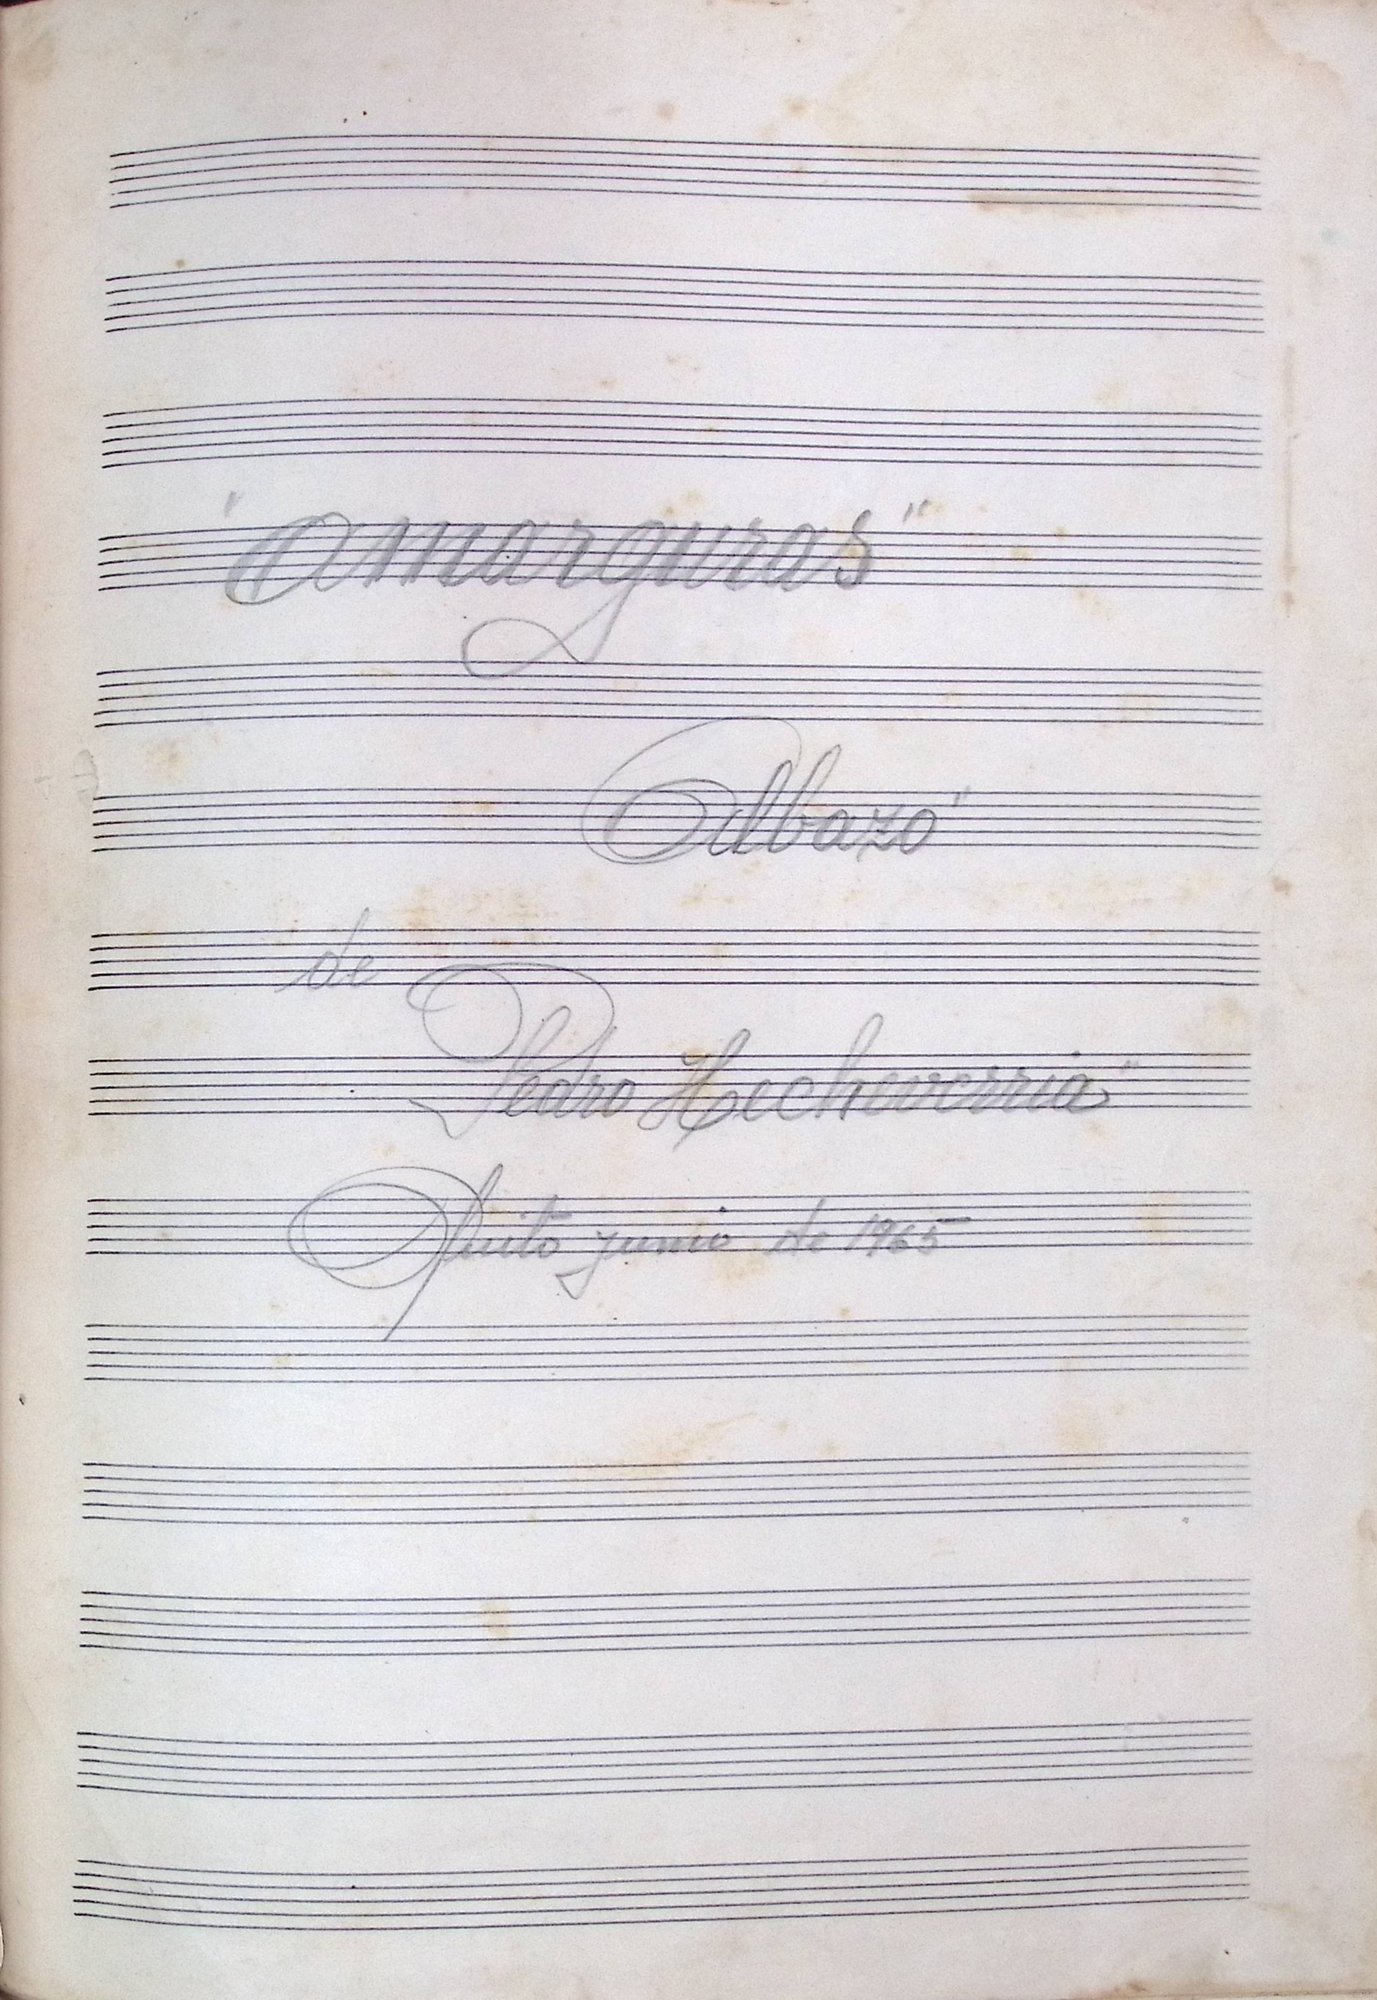 "Amarguras"
Albazo"
de
Pedro Hecheverria"
Quito junio de 1965